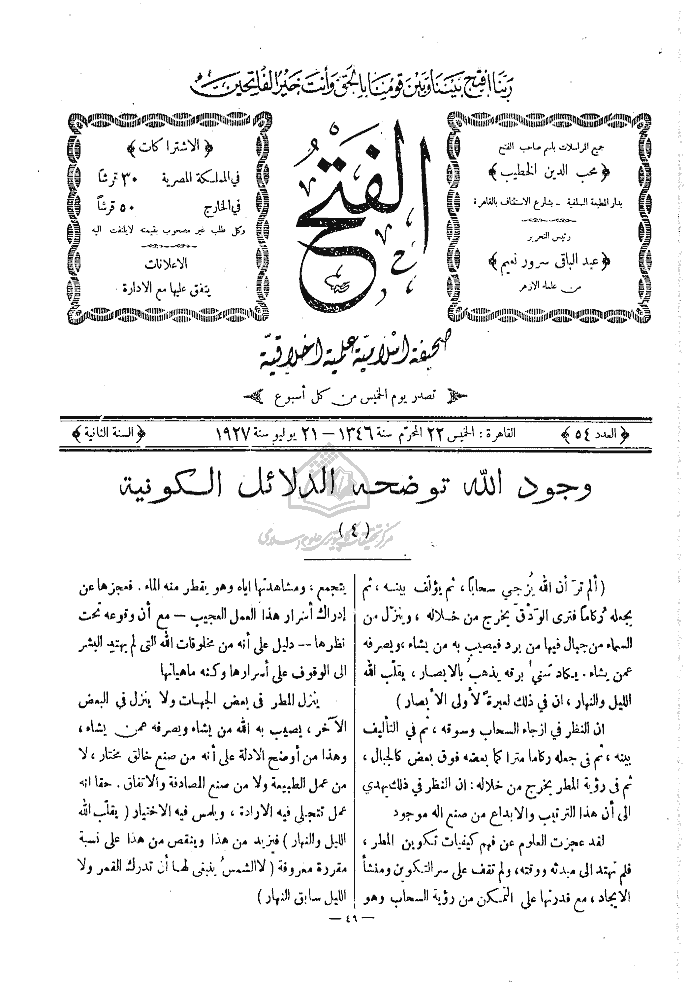 ربنا افتح بيننا وبين قومنا بالحق وأنت خير الفاتحين
جميع المراسلات باسم صاحب الفتح
﴿ محب الدين الخطيب ﴾
بدار المطبعة السلفية – بشارع الاستئناف بالقاهرة
رئيس التحرير
﴿ عبد الباقى سرور نعيم ﴾
من علماء الازهر
الفتح
﴿ الاشتراكات ﴾
في المملكة المصرية ٣٠ قرشا
في الخارج ٥٠ قرشا
وكل طلب غير مصحوب بقيمته لايلتفت اليه
الاعلانات
يتفق عليها مع الادارة
صحيفة اسلامية علمية اخلاقية
تصدر يوم الخميس من كل أسبوع
﴿ العدد ٥٤ ﴾
القاهرة : الخميس ٢٢ المحرم سنة ١٣٤٦ – ٢١ يوليو سنة ١٩٢٧
﴿ السنة الثانية ﴾
وجود الله توضحه الدلائل الكونية
( ٤ )
( ألم تر أن الله يُزجي سحابا ، ثم يؤلف بينه ، ثم
يجعله ركاما فترى الودق يخرج من خلاله ، وينزل من
السماء من جبال فيها من برد فيصيب به من يشاء ،ويصرفه
عمن يشاء . يكاد سني برقه يذهب بالابصار ، يقلّب الله
الليل والنهار ، ان في ذلك لعبرة لأولى الأبصار )
ان النظر في ازجاء السحاب وسوقه ، ثم في التأليف
بينه ، ثم في جعله ركاما متراكما بعضه فوق بعض كالجبال ،
ثم في رؤية المطر يخرج من خلاله : ان النظر في ذلك يهدي
الى أن هذا الترتيب والابداع من صنع اله موجود
لقد عجزت العلوم عن فهم كيفيات تكوين المطر ،
فلم تهتد الى مبدئه ووقته ، ولم تقف على سر التكوين ومنشأ
الايجاد ، مع قدرتها على التمكن من رؤية السحاب وهو
يتجمع ، ومشاهدتها اياه وهو يقطر منه الماء . فعجزها عن
إدراك أسرار هذا العمل العجيب – مع أن وقوعه تحت
نظرها -- دليل على أنه من مخلوقات الله التى لم يهتد البشر
الى الوقوف على أسرارها وكنه ماهياتها
ينزل المطر في بعض الجهات ولا ينزل في البعض
الآخر ، يصيب به الله من يشاء ويصرفه عمن يشاء ،
وهذا من أوضح الادلة على أنه من صنع خالق مختار ، لا
من عمل الطبيعة ولا من صنع المصادفة والاتفاق . حقا انه
عمل تتجلى فيه الارادة ، ويلمس فيه الاختيار ( يقلب الله
الليل والنهار ) فيزيد من هذا وينقص من هذا على نسبة
مقررة معروفة ( لا الشمس ينبغى لها أن تدرك القمر ولا
الليل سابق النهار )
— ٤٩ —